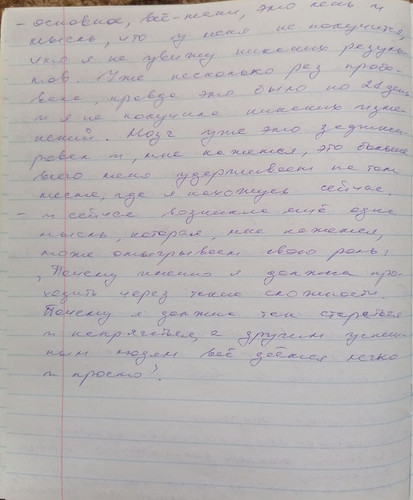 - основное, всё-таки, это лень и
мысль, что у меня не получится,
что я не увижу никаких резуль
татов. Уже несколько раз пробо-
вала, правда это было по 2 дня
и я не получила никаких изме-
нений. Мозг уже это зафикси
ровал и, мне кажется, это больше
всего меня удерживает на том
месте, где я нахожусь сейчас.
- и сейчас возникла ещё одна
мысль, которая, мне кажется,
тоже отыгрывает свою роль:
"Почему именно я должна про-
ходить через такие сложности.
Почему я должна так стараться
и напрягаться, а другим успеш-
ным людям всё даётся легко
и просто?"